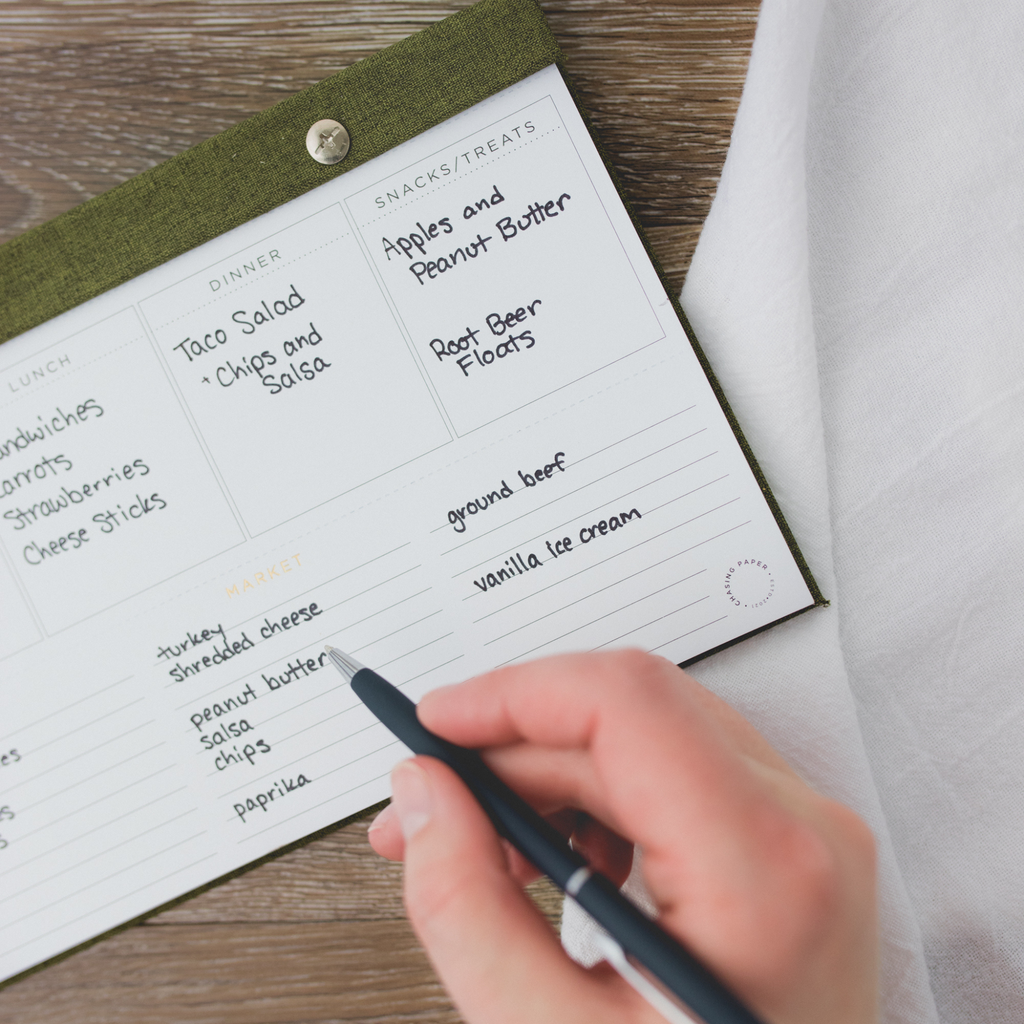 LUNCH
andwiches
arrots
Strawberries
Cheese Sticks
DINNER
Taco Salad
+ Chips and
Salsa
SNACKS/TREATS
Apples and
Peanut Butter
Root Beer
Floats
MARKET
turkey
shredded cheese
peanut butter
salsa
chips
paprika
ground beef
vanilla ice cream
CHASING PAPER